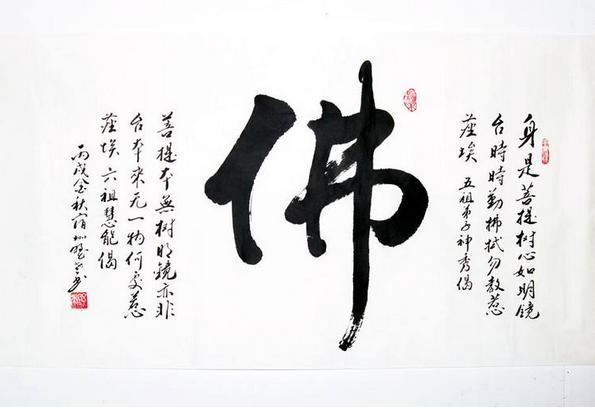 身是菩提树心如明镜
台時時勤拂拭勿教惹
塵埃 五祖弟子神秀偈
佛
菩提本無树明鏡亦非
台本來无一物何處惹
塵埃 六祖慧能偈
丙戌金秋